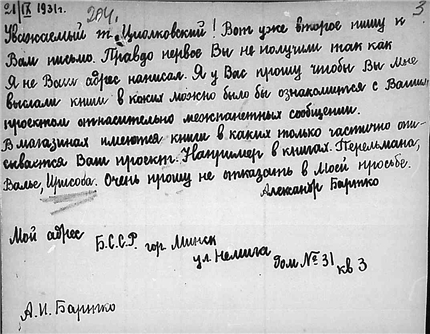 21/IX 1931г. 204. 3
Уважаемый т. Циолковский! Вот уже второе пишу к
Вам письмо. Правдо первое Вы не получили так как
Я не Ваш адрес написал. Я у Вас прошу чтобы Вы мне
выслали книги в каких можно было бы ознакомится с Вашим
проектом относительно межпланетных сообщении.
В магазинах имеются книги в каких только частично опи-
сивается Ваш проект. Например в книгах. Перельмана,
Валье, Ирисова. Очень прошу не отказать в Моей просьбе.
Александр Баритко
Мой адрес
Б.С.С.Р. гор. Минск
ул Немига
дом №31
кв 3
А.И. Баритко